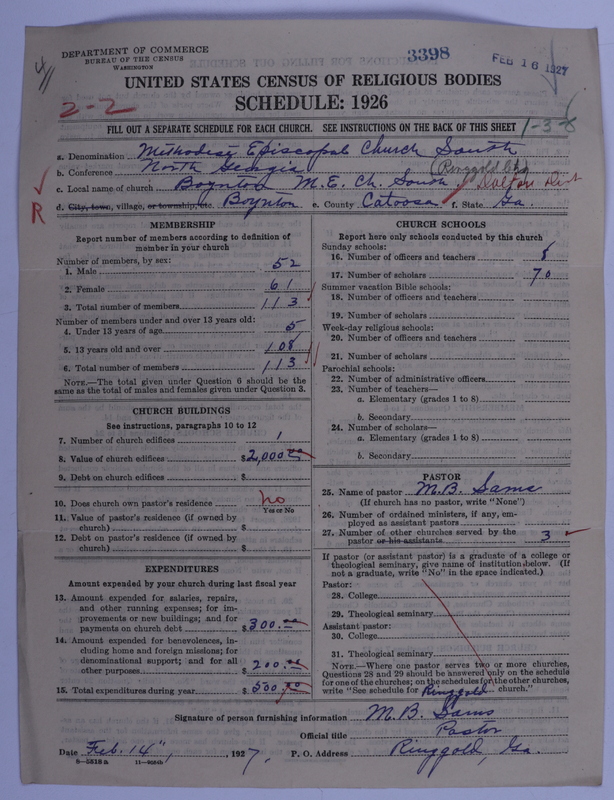 DEPARTMENT OF COMMERCE
BUREAU OF THE CENSUS
WASHINGTON
3398
FEB 16 1927
UNITED STATES CENSUS OF RELIGIOUS BODIES
SCHEDULE: 1926
2-2
FILL OUT A SEPARATE SCHEDULE FOR EACH CHURCH. SEE INSTRUCTIONS ON THE BACK OF THIS SHEET
1-3-8
a. Denomination Methodist Episcopal Church South
b. Conference North Georgia (Ringgold Chg)
c. Local name of church Boynton M.E. Ch. South Dalton Dist
d. City, town, village, or township, etc. Boynton e. County Catoosa f. State Ga.
R
MEMBERSHIP
Report number of members according to definition of member in your church
Number of members, by sex:
1. Male 52
2. Female 61
3. Total number of members 113
Number of members under and over 13 years old:
4. Under 13 years of age 5
5. 13 years old and over 108
6. Total number of members 113
NOTE.—The total given under Question 6 should be the same as the total of males and females given under Question 3.
CHURCH BUILDINGS
See instructions, paragraphs 10 to 12
7. Number of church edifices 1
8. Value of church edifices $2,000.00
9. Debt on church edifices $
10. Does church own pastor's residence no
Yes or No
11. Value of pastor's residence (if owned by church) $
12. Debt on pastor's residence (if owned by church) $
EXPENDITURES
Amount expended by your church during last fiscal year
13. Amount expended for salaries, repairs, and other running expenses; for improvements or new buildings; and for payments on church debt $300.00
14. Amount expended for benevolences, including home and foreign missions; for denominational support; and for all other purposes $200.00
15. Total expenditures during year $500.00
CHURCH SCHOOLS
Report here only schools conducted by this church
Sunday schools:
16. Number of officers and teachers 8
17. Number of scholars 70
Summer vacation Bible schools:
18. Number of officers and teachers
19. Number of scholars
Week-day religious schools:
20. Number of officers and teachers
21. Number of scholars
Parochial schools:
22. Number of administrative officers
23. Number of teachers—
a. Elementary (grades 1 to 8)
b. Secondary
24. Number of scholars—
a. Elementary (grades 1 to 8)
b. Secondary
PASTOR
25. Name of pastor M.B. Sams
(If church has no pastor, write "None")
26. Number of ordained ministers, if any, employed as assistant pastors
27. Number of other churches served by the pastor or his assistants 3
If pastor (or assistant pastor) is a graduate of a college or theological seminary, give name of institution below. (If not a graduate, write "No" in the space indicated.)
Pastor:
28. College
29. Theological seminary
Assistant pastor:
30. College
31. Theological seminary
NOTE.—Where one pastor serves two or more churches, Questions 28 and 29 should be answered only on the schedule for one of the churches; on the schedules for the other churches, write "See schedule for Ringgold church."
Signature of person furnishing information M.B. Sams
Official title Pastor
Date Feb. 14", 1927. P. O. Address Ringgold, Ga.